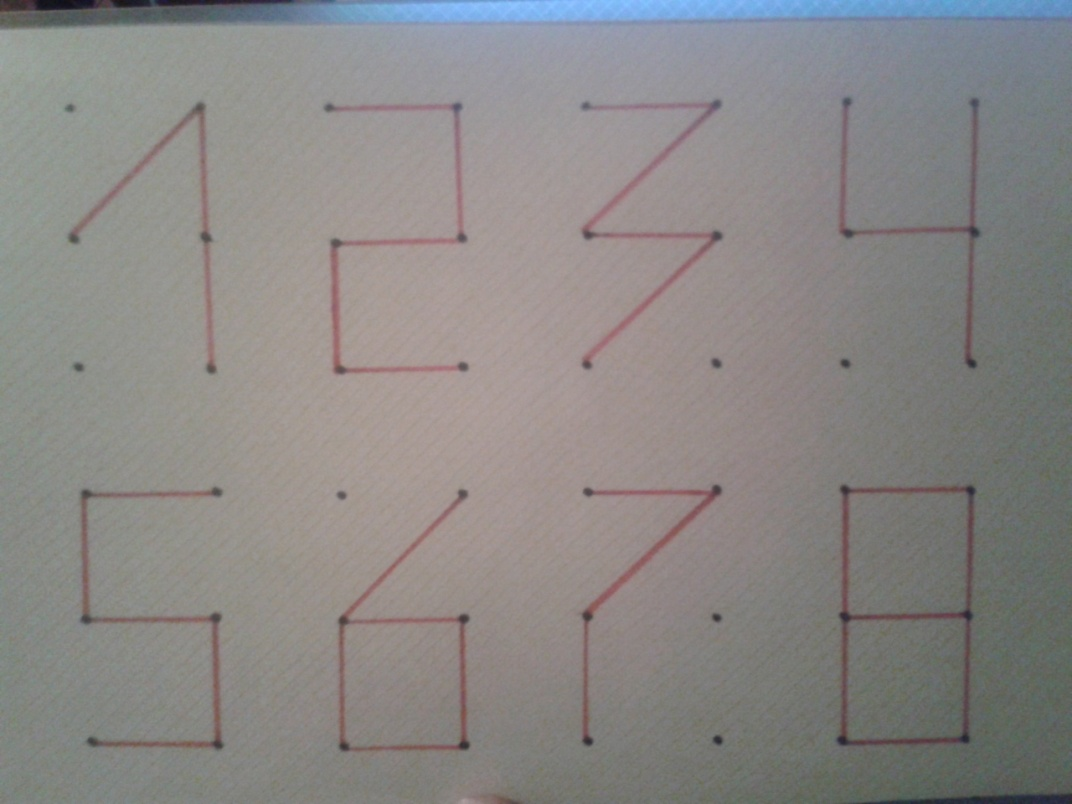 1 2 3 4
5 6 7 8